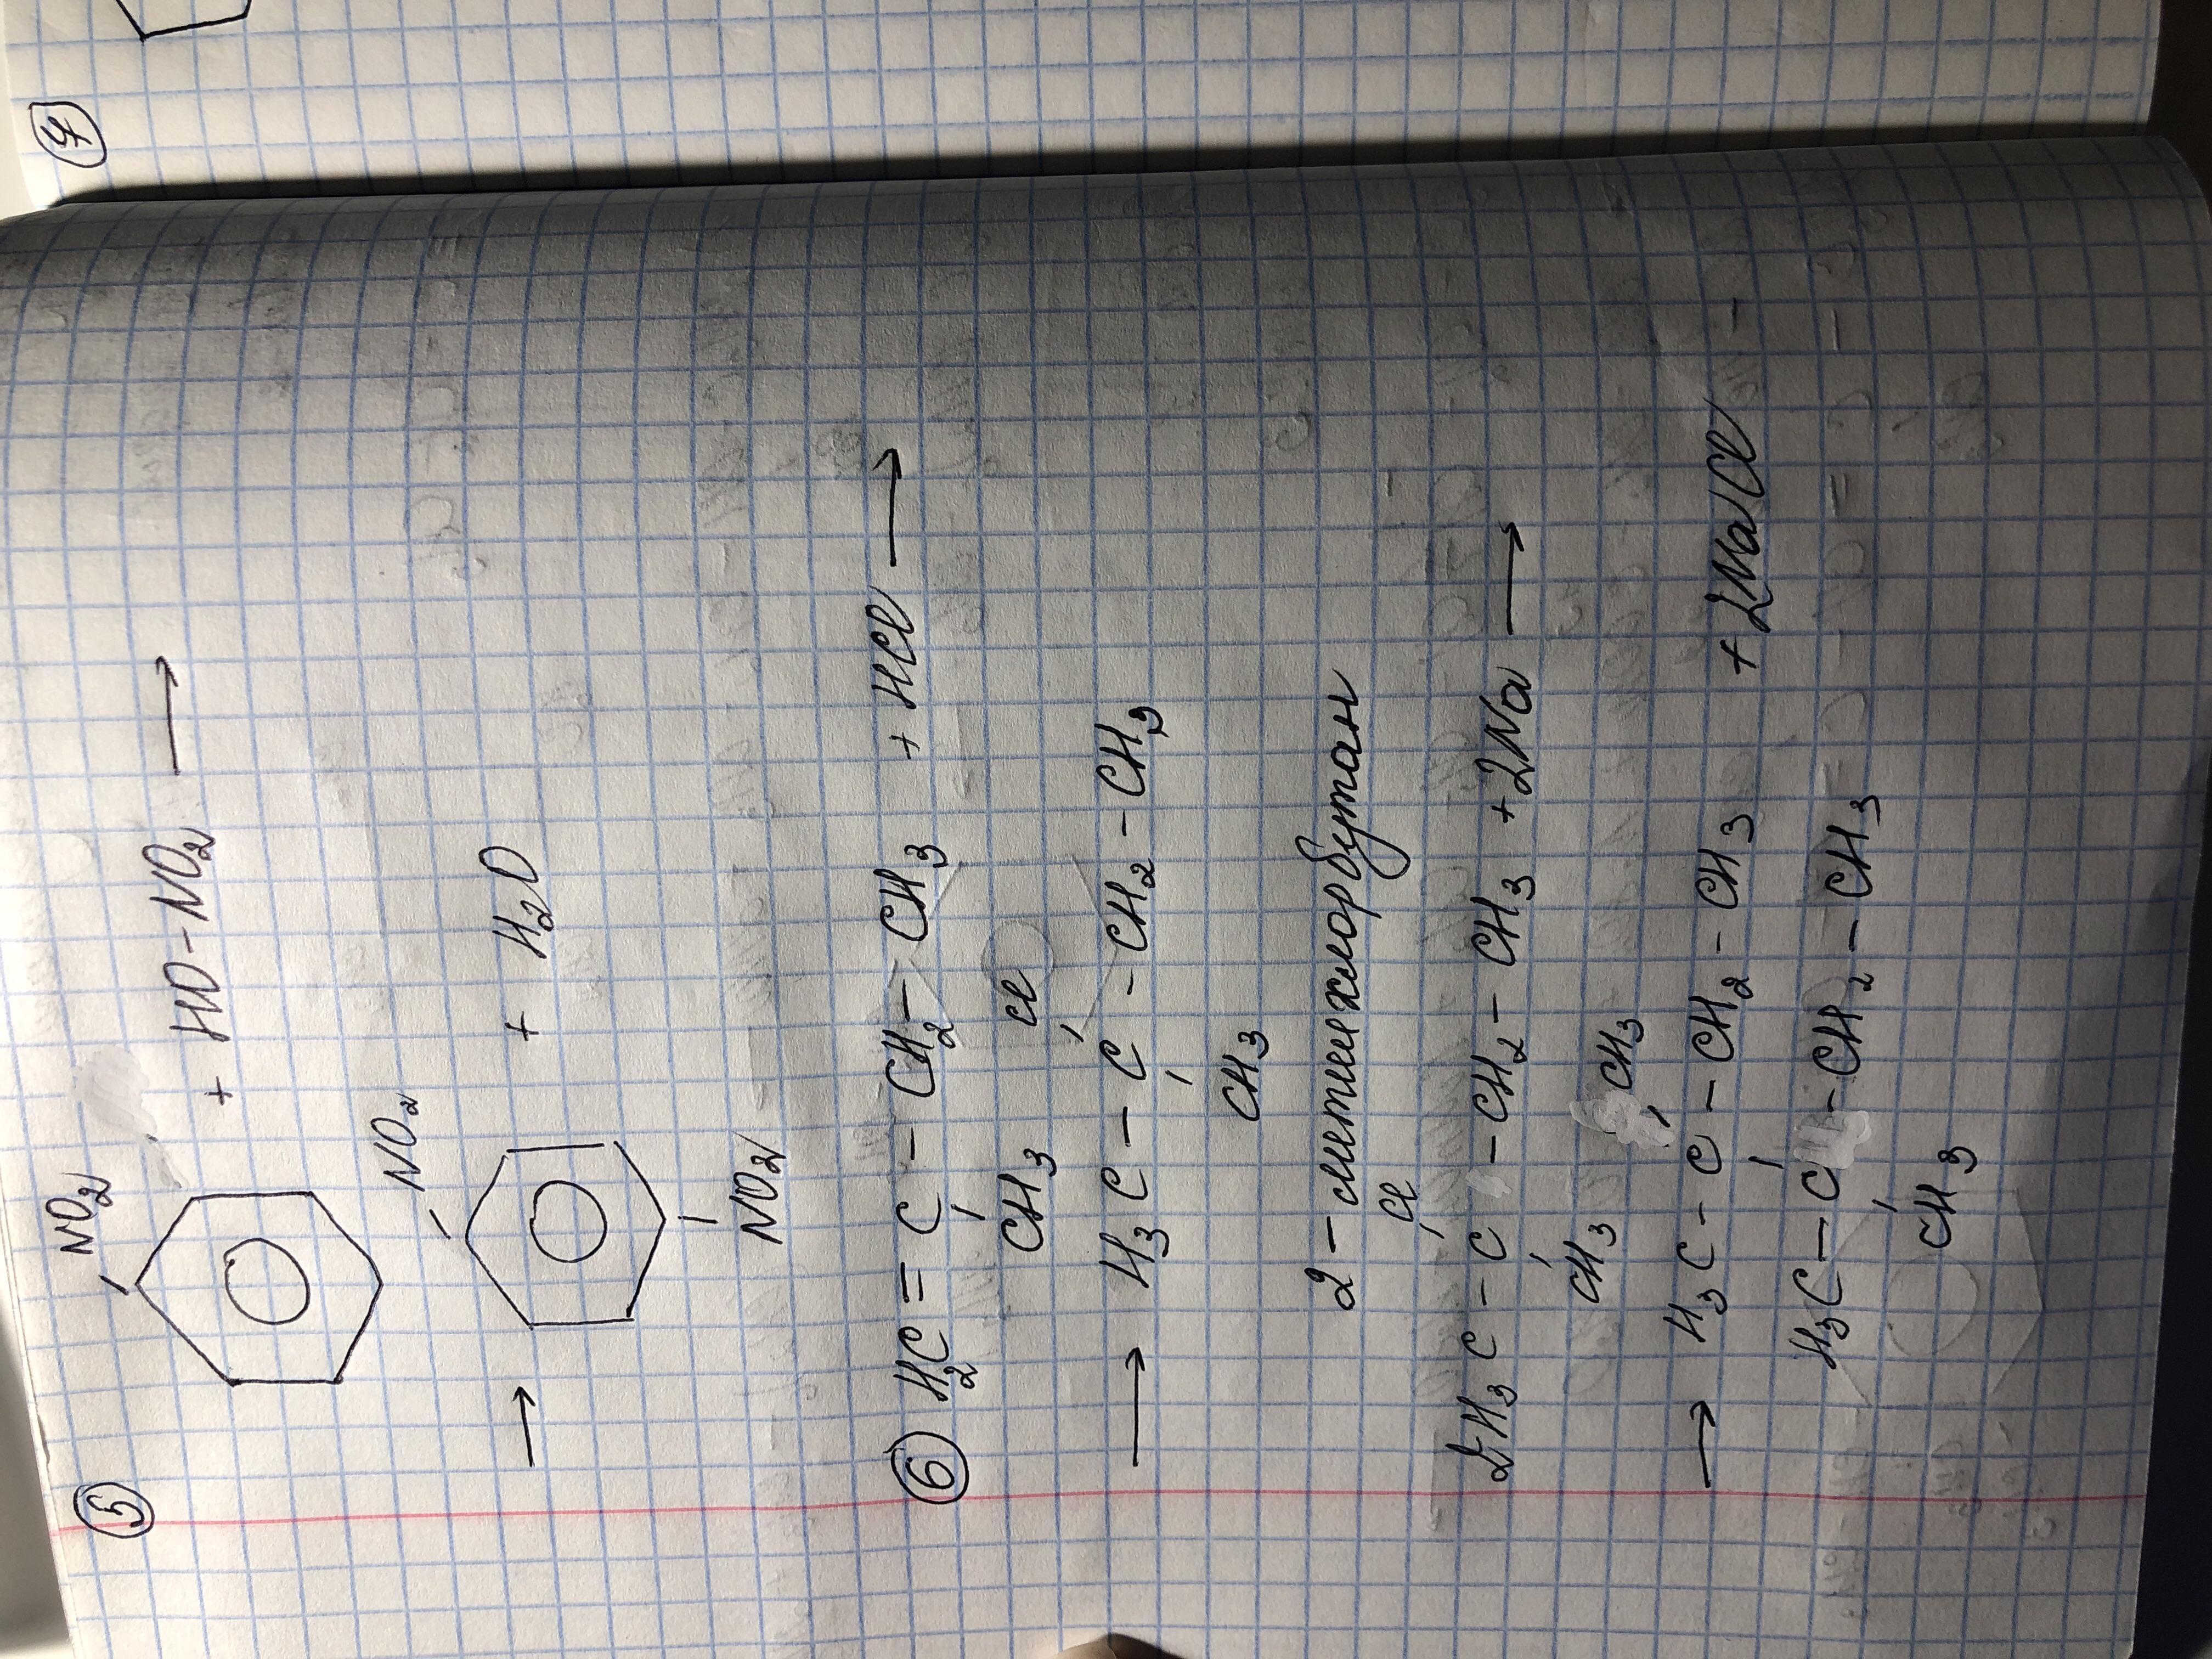 5
NO2
+ HO-NO2 →
NO2
→ + H2O
NO2
6 H2C = C - CH2 - CH3 + HCl →
CH3 Cl
→ H3C - C - CH2 - CH3
CH3
2-метилхлорбутан
Cl
2H3C - C - CH2 - CH3 + 2Na →
CH3 CH3
→ H3C - C - CH2 - CH3 + 2NaCl
H3C - C - CH2 - CH3
CH3
7